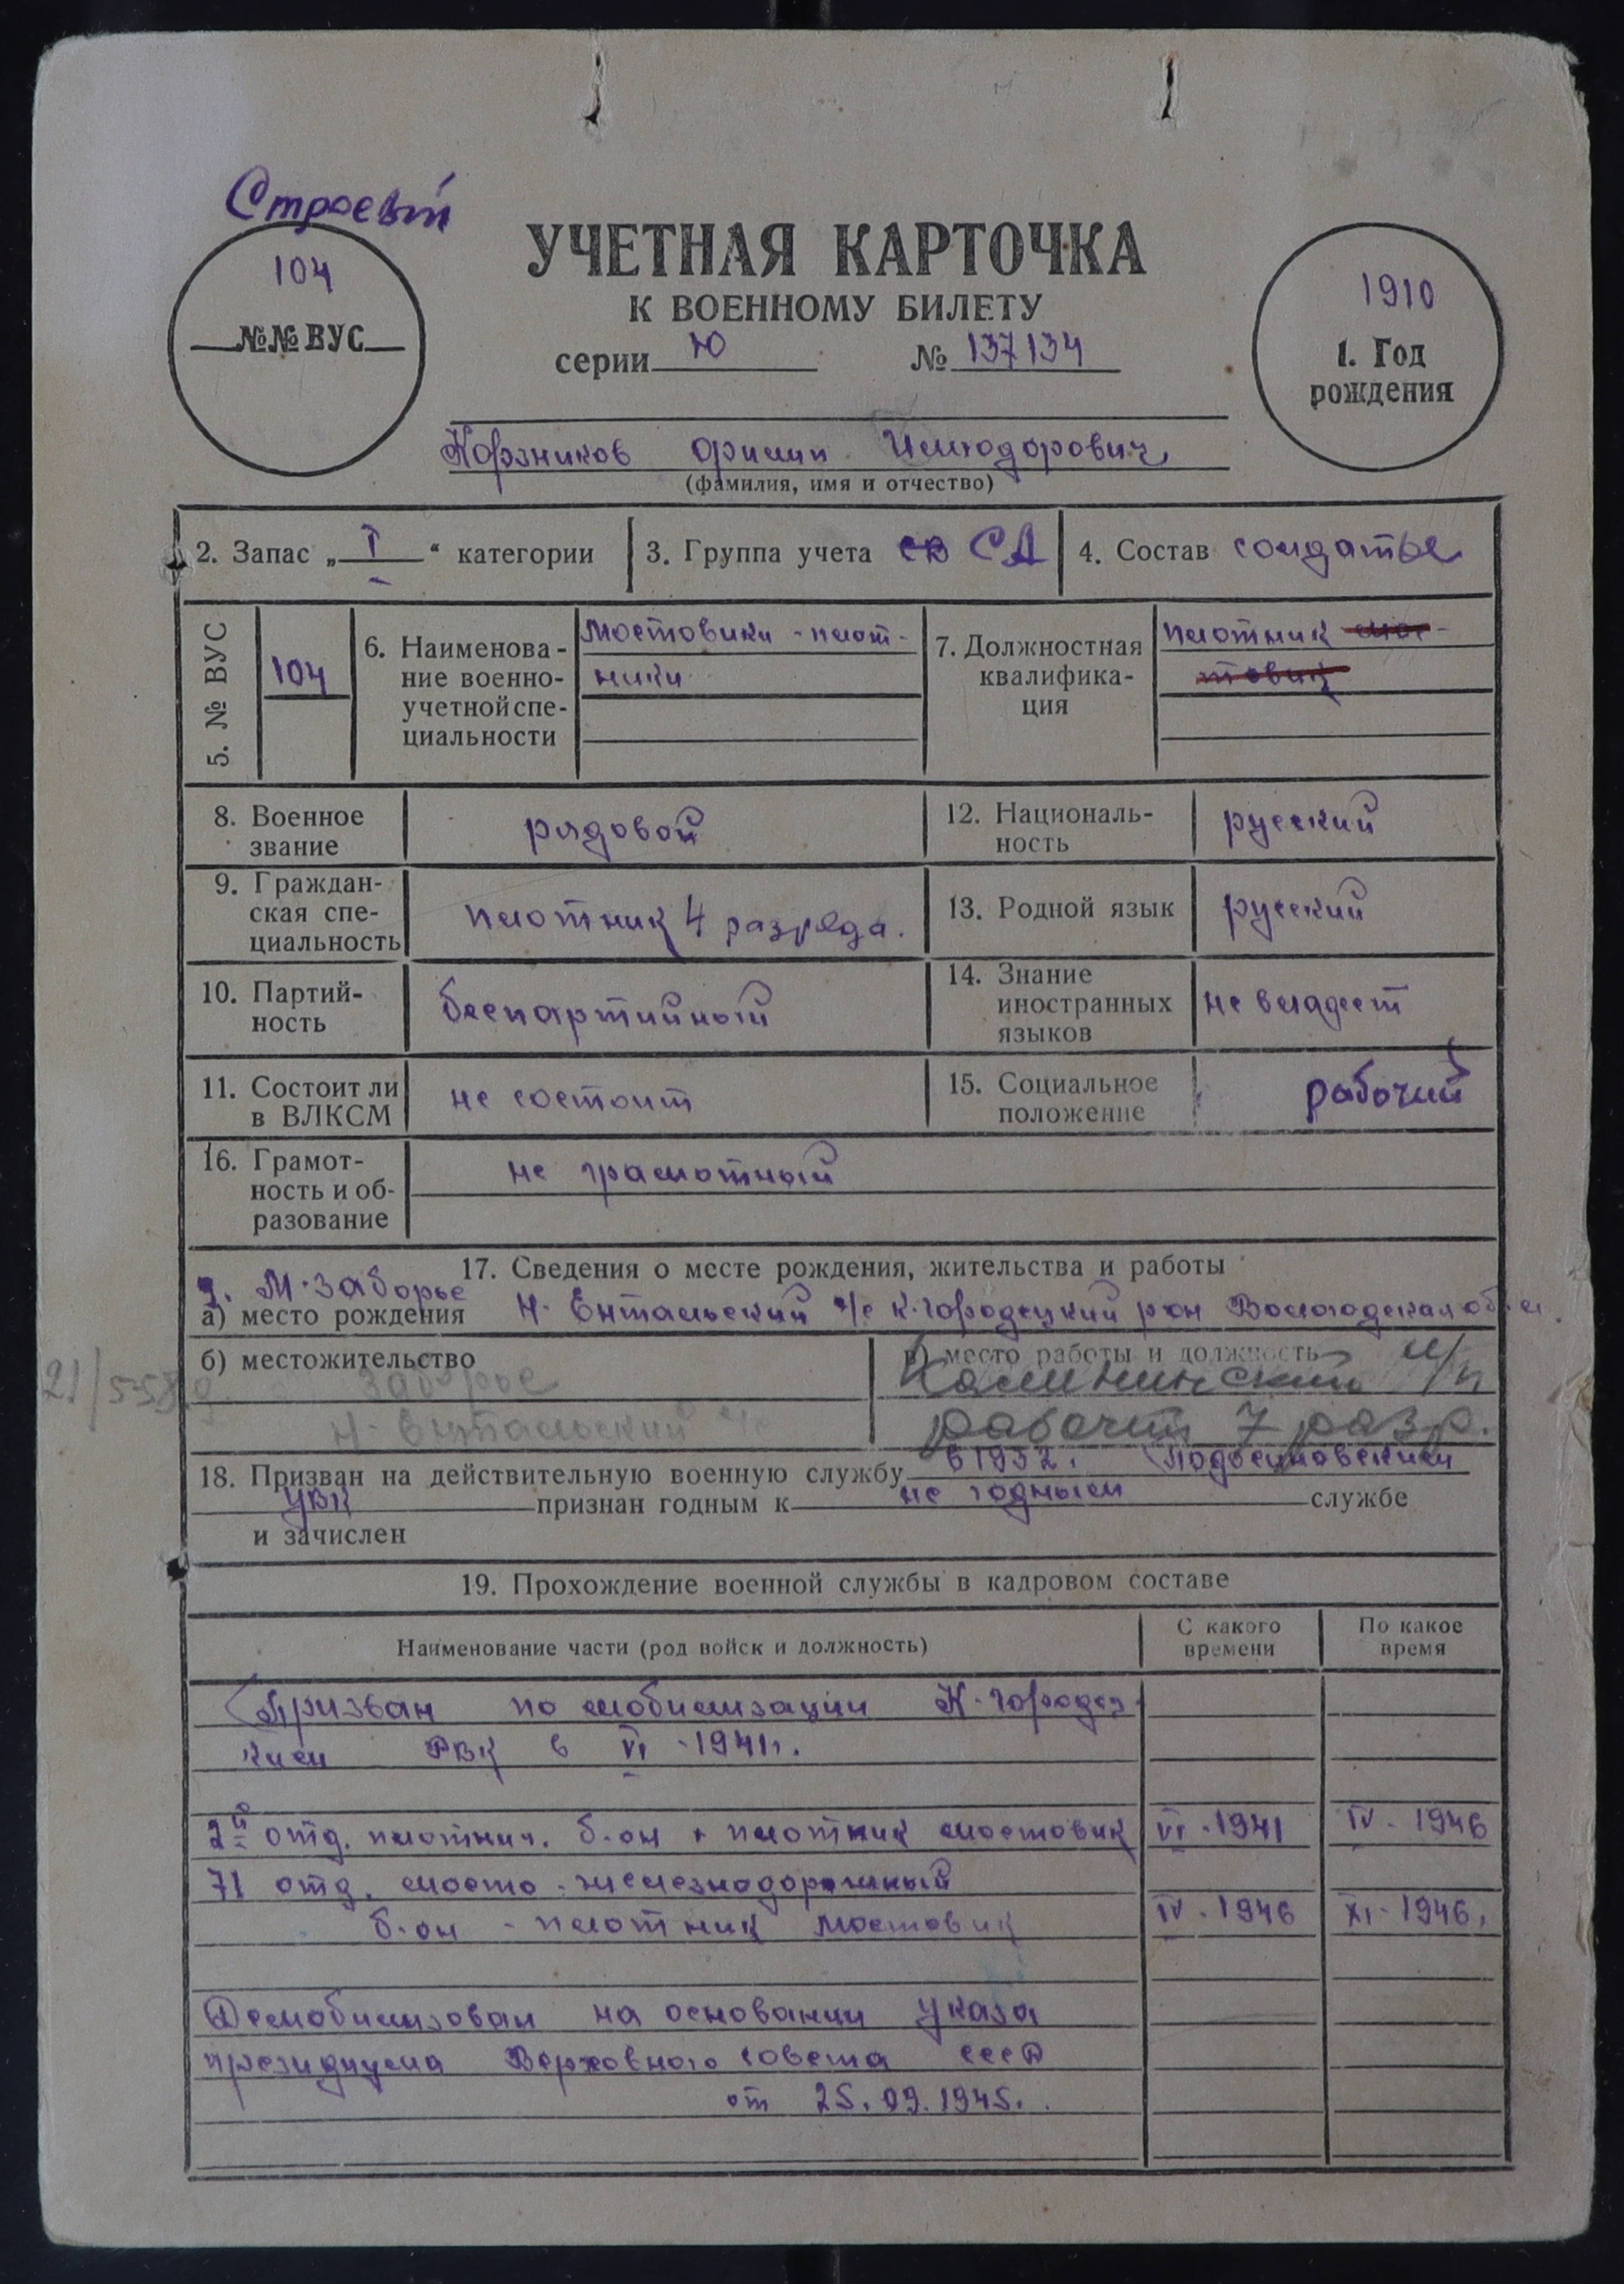 Строевый
104
№№ ВУС
УЧЕТНАЯ КАРТОЧКА
К ВОЕННОМУ БИЛЕТУ
серии Ю № 137134
1910
1. Год
рождения
(фамилия, имя и отчество)
2. Запас „I“ категории
3. Группа учета СВ СА
4. Состав солдаты
5. № ВУС
104
6. Наименова-
ние военно-
учетной спе-
циальности
Мостовики - плот-
ники
7. Должностная
квалифика-
ция
плотник мос-
товик
8. Военное
звание
рядовой
12. Националь-
ность
русский
9. Граждан-
ская спе-
циальность
плотник 4 разряда.
13. Родной язык
русский
10. Партий-
ность
беспартийный
14. Знание
иностранных
языков
не владеет
11. Состоит ли
в ВЛКСМ
не состоит
15. Социальное
положение
рабочий
16. Грамот-
ность и об-
разование
не грамотный
17. Сведения о месте рождения, жительства и работы
д. М. Заборье
а) место рождения Н-Ентальский с/с К-городецкий р-он Вологодская обл.
б) местожительство
Заборье
Н-Ентальский с/с
21/5-58 г.
в) место работы и должность
рабочий 7 разр.
18. Призван на действительную военную службу в 1932. Подосиновским
УВК признан годным к не годным службе
и зачислен
19. Прохождение военной службы в кадровом составе
Наименование части (род войск и должность)
С какого
времени
По какое
время
Призван по мобилизации К-городец-
ким РВК в VI-1941г.
2й отд. плотнич. б-он - плотник мостовик VI-1941 IV-1946
71 отд. мосто-железнодорожный
б-он - плотник мостовик IV-1946 XI-1946.
Демобилизован на основании Указа
президиума Верховного совета СССР
от 25.09.1945.